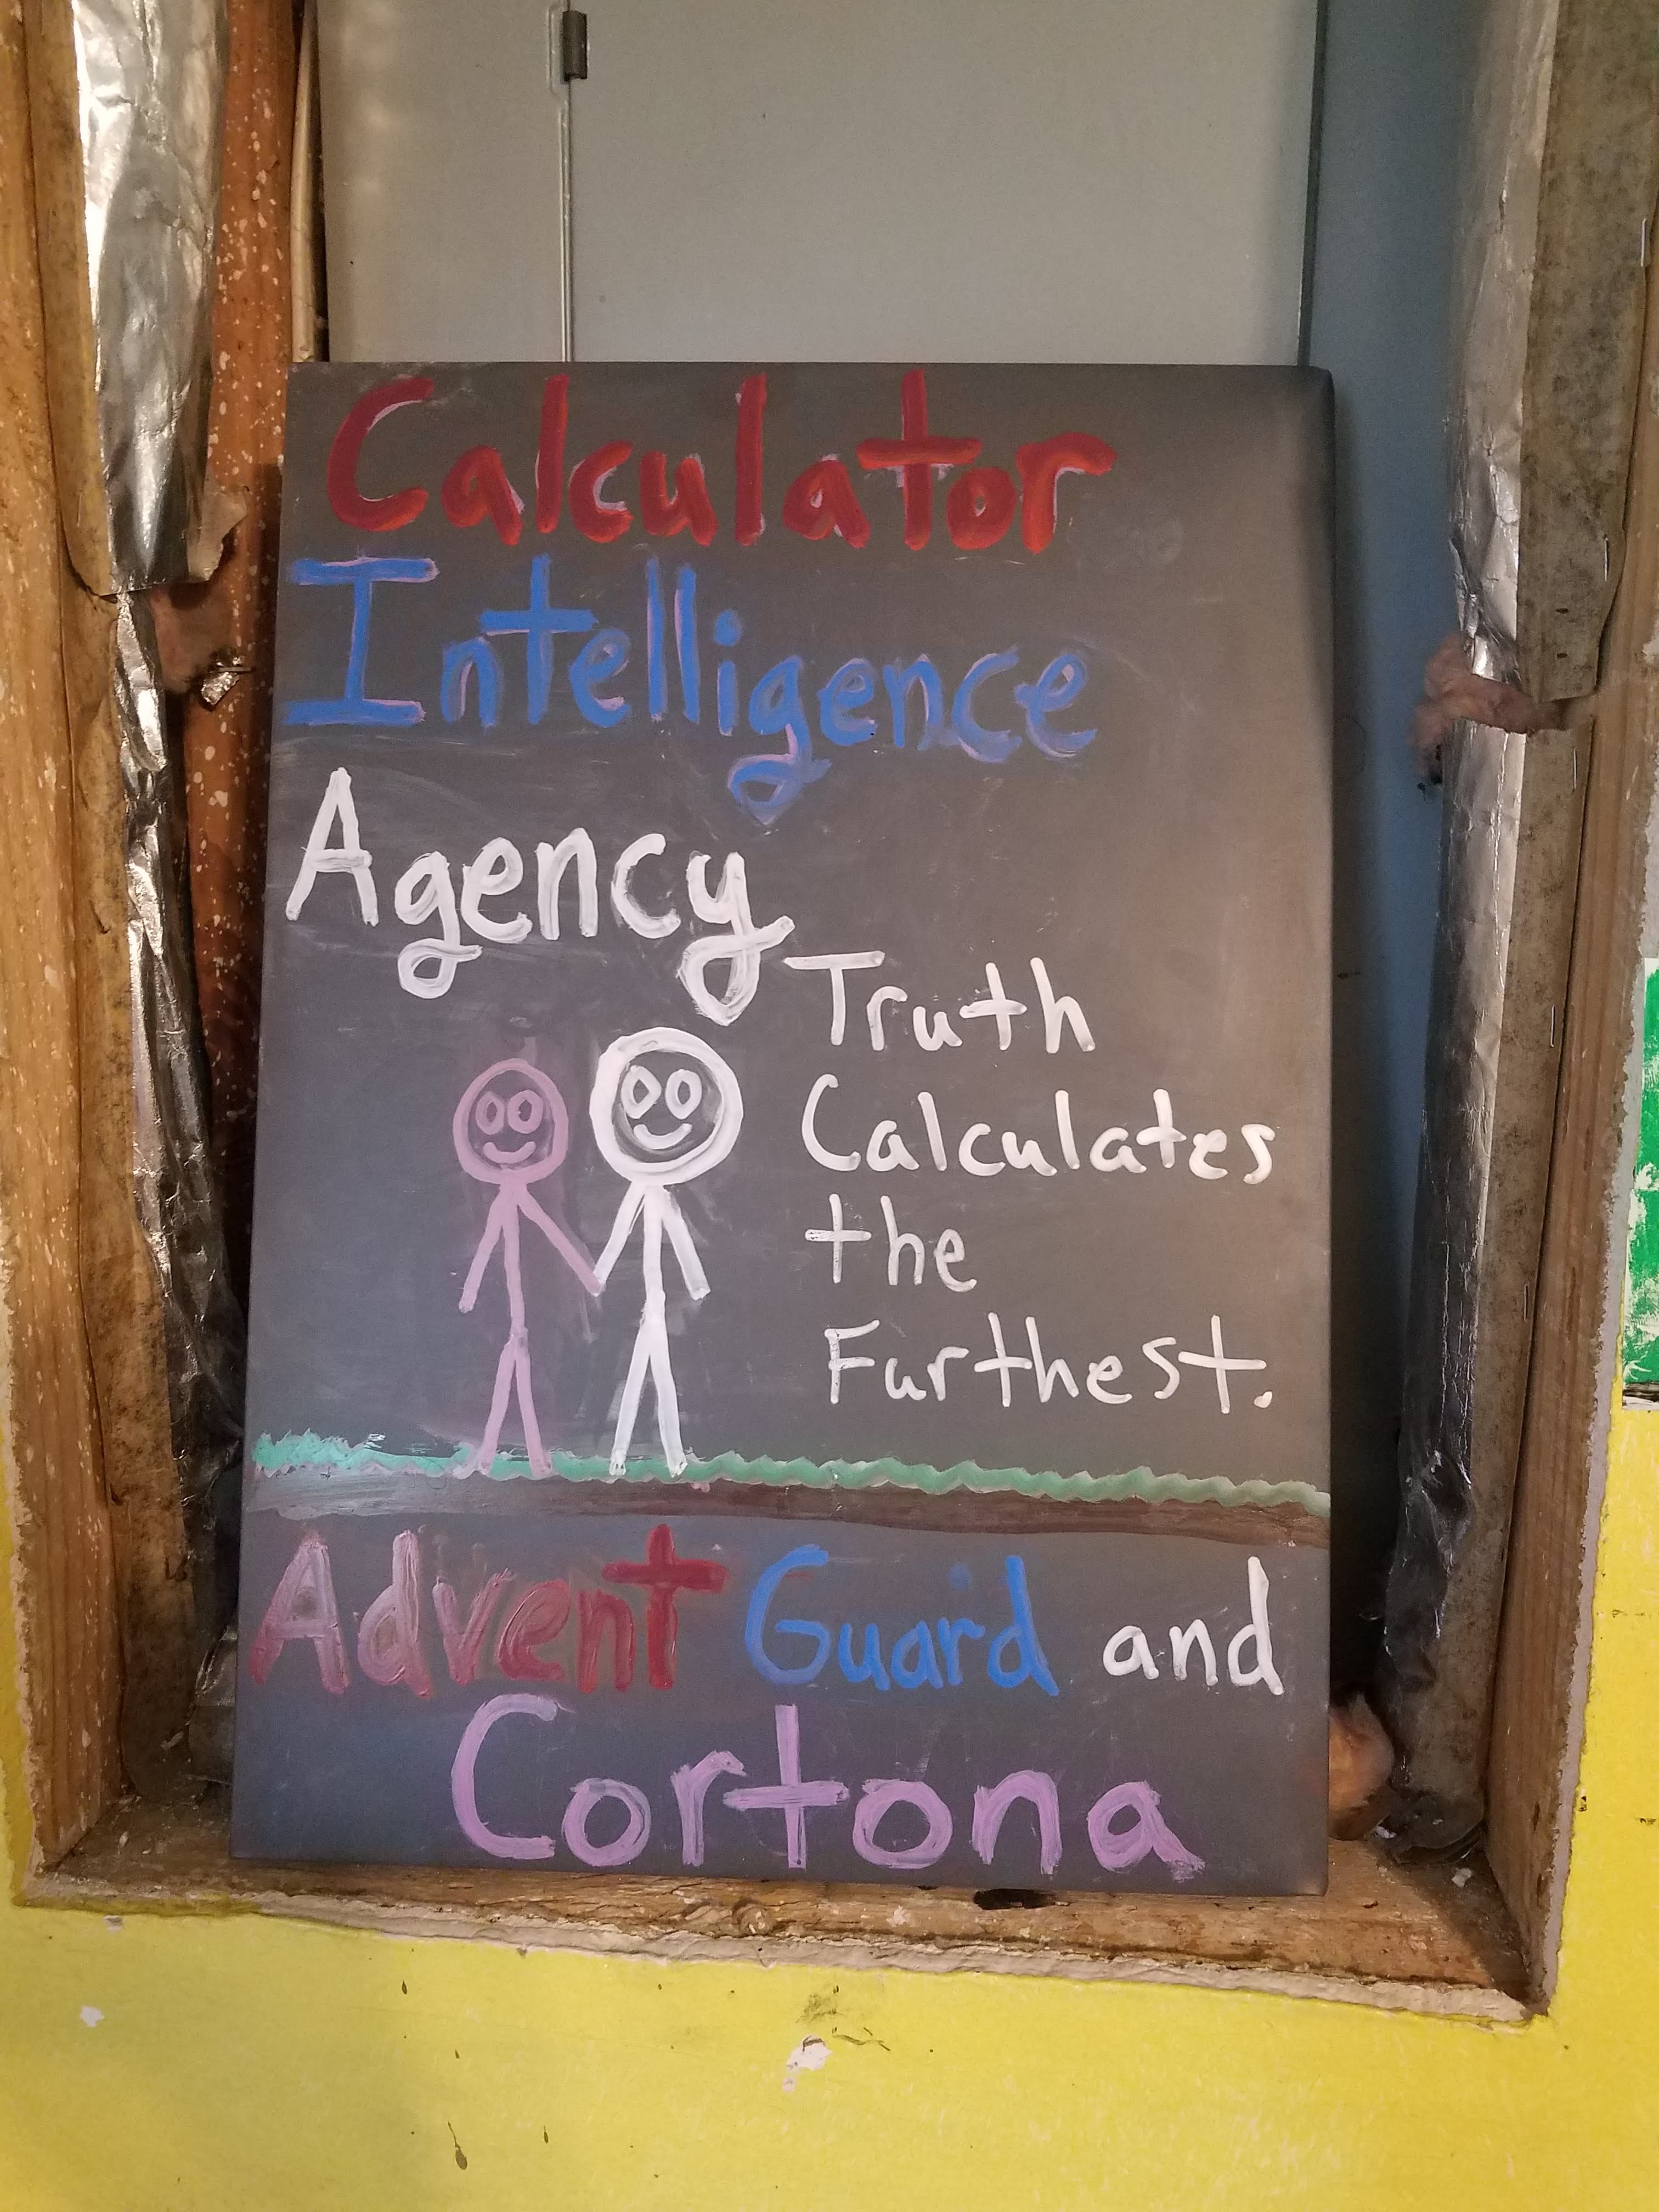 Calculator
Intelligence
Agency
Truth
Calculates
the
Furthest.
Advent Guard and
Cortona